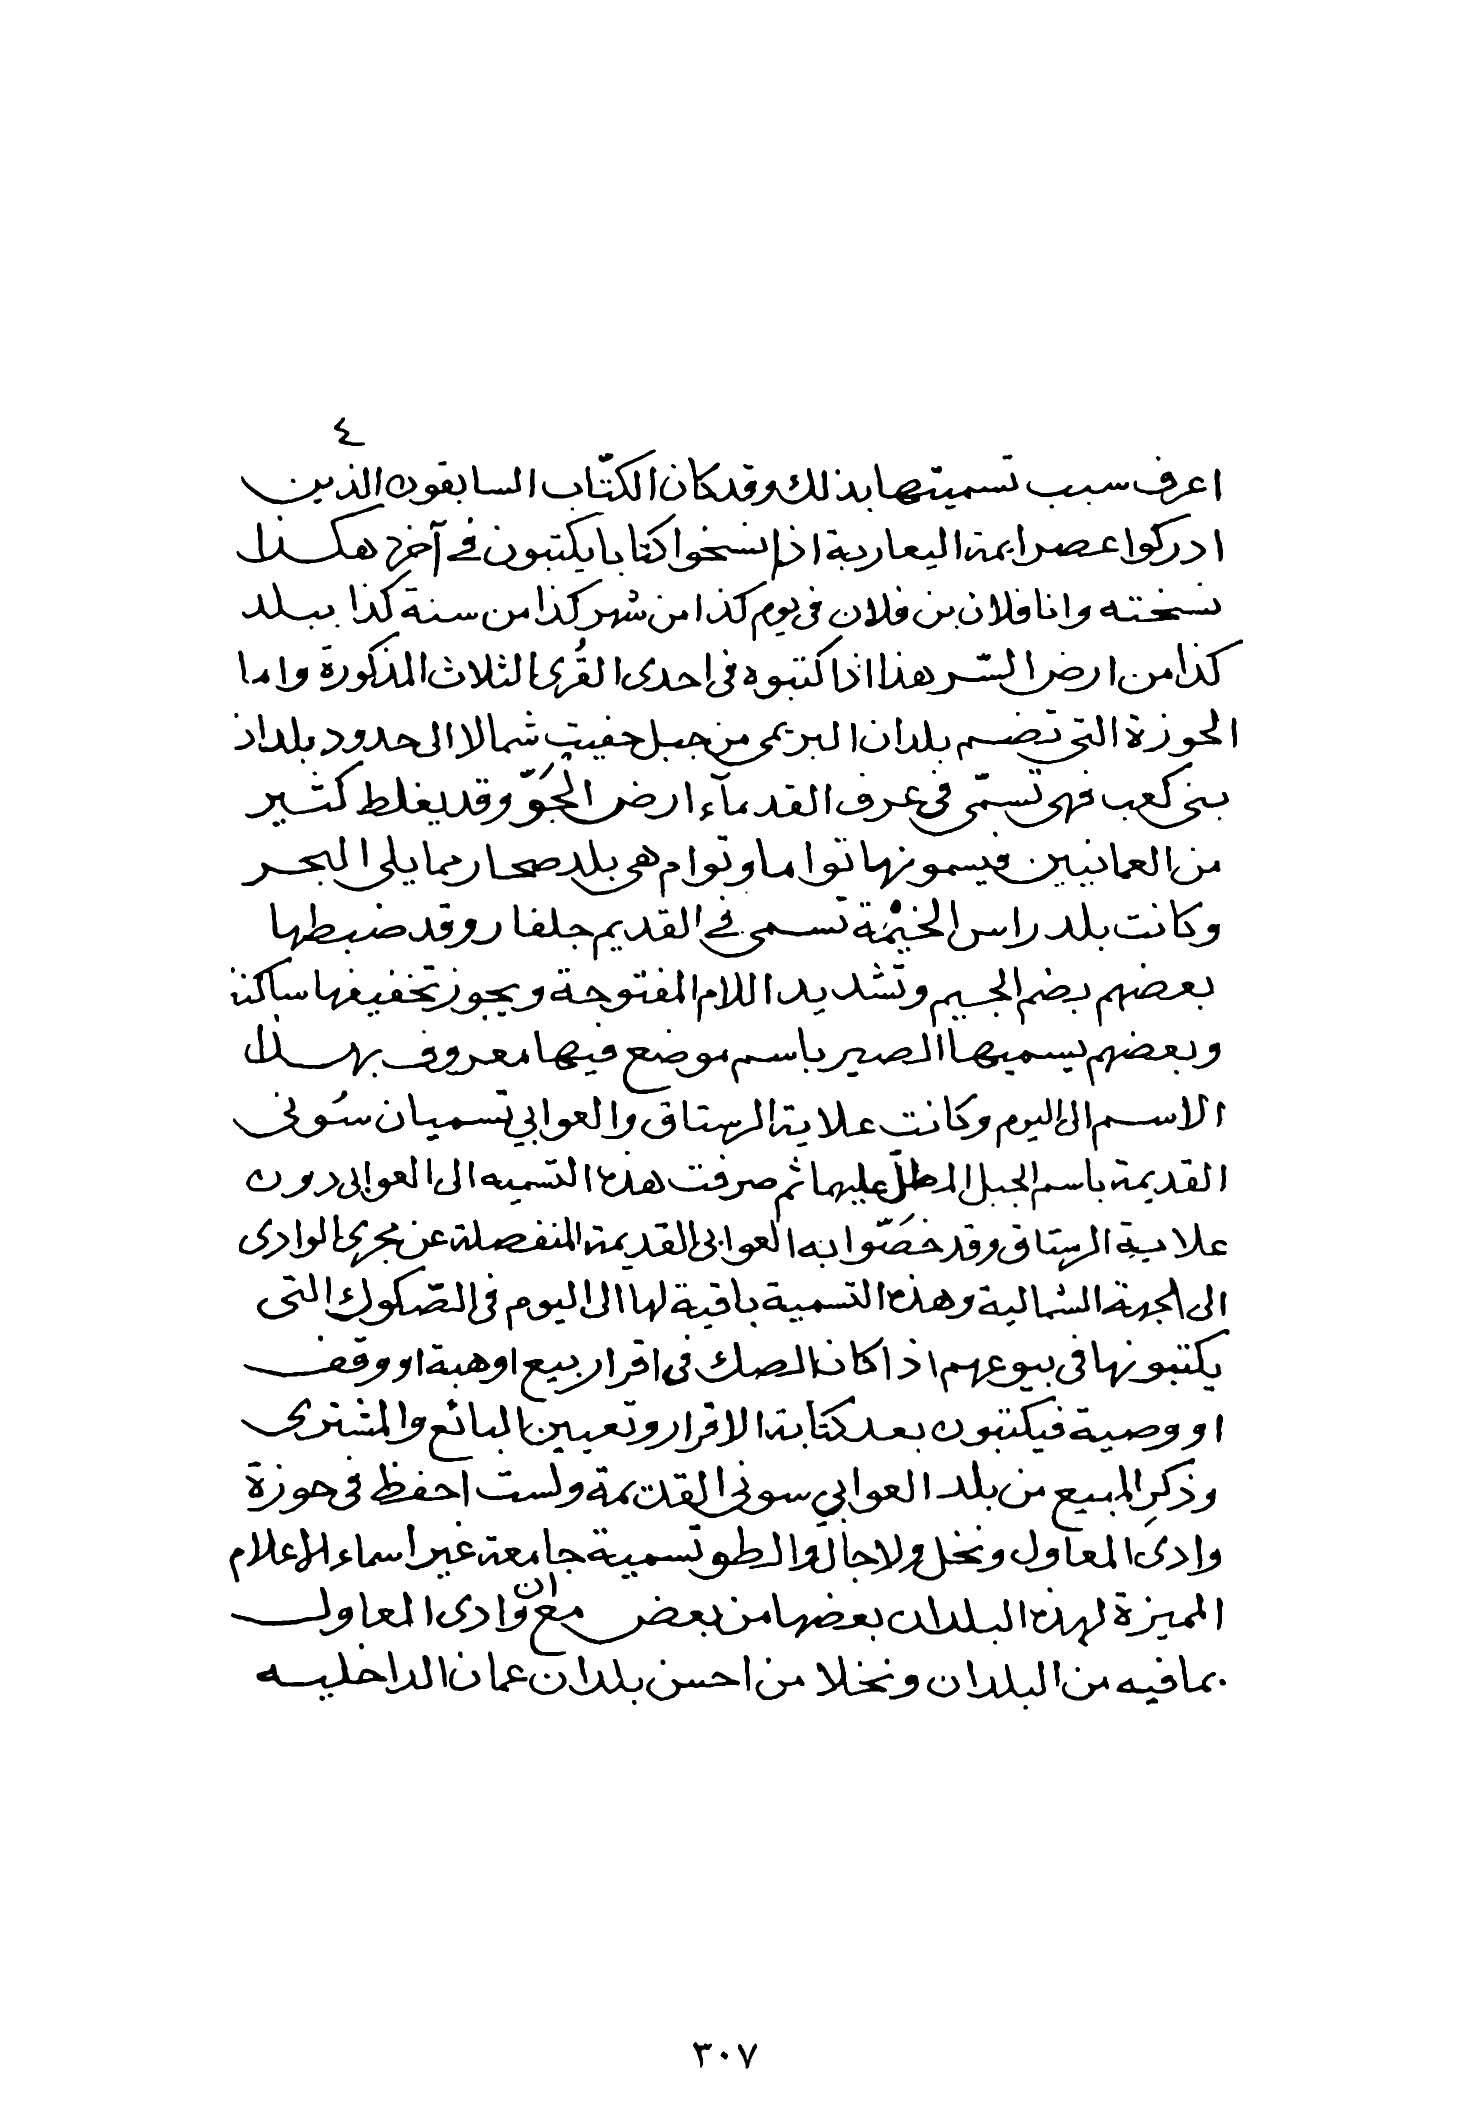 ٤
اعرف سبب تسميتها بذلك وقد كان الكتّاب السابقون الذين
ادركوا عصر ايمة اليعاربة اذا نسخوا كتابا يكتبون في آخره هكذا
نسخته وانا فلان بن فلان في يوم كذا من شهر كذا من سنة كذا ببلد
كذا من ارض السّر هذا اذا كتبوه في احدى القُرى الثلاث المذكورة واما
الحوزة التي تضم بلدان البريمى من جبل حفيت شمالا الى حدود بلدان
بنى كعب فهى تسمّى في عرف القدمآء ارض الجَوّ وقد يغلط كثير
من العمانيين فيسمونها تواما وتوام هى بلد صحار مما يلى البحر
وكانت بلد راس الخيْمَة تسمى في القديم جلفار وقد ضبطها
بعضهم بضم الجيم وتشديد اللام المفتوحة ويجوز تخفيفها ساكنة
وبعضهم يسميها الصير باسم موضع فيها معروف بهذا
الاسم الى اليوم وكانت علاية الرستاق والعوابي تسميان سُونى
القديمة باسم الجبل المطلّ عليهما ثم صرفت هذه التسميه الى العوابى دون
علاية الرستاق وقد خصَّوا به العوابى القديمة المنفصلة عن مجرى الوادى
الى الجهة الشمالية وهذه التسمية باقية لها الى اليوم في الصّكوك التى
يكتبونها في بيوعهم اذا كان الصك في اقرار بيع او هبة او وقف
او وصية فيكتبون بعد كتابة الاقرار وتعيين البائع والمشترى
وذكرِ المبيع من بلد العوابي سونى القديمة ولست احفظ في حوزة
وادى المعاول ونخل ولاجال والطو تسمية جامعة غير اسماء الاعلام
المميزة لهذه البلدان بعضها من بعض مع ان وادى المعاول
بما فيه من البلدان ونخلا من احسن بلدان عمان الداخليه
٣٠٧